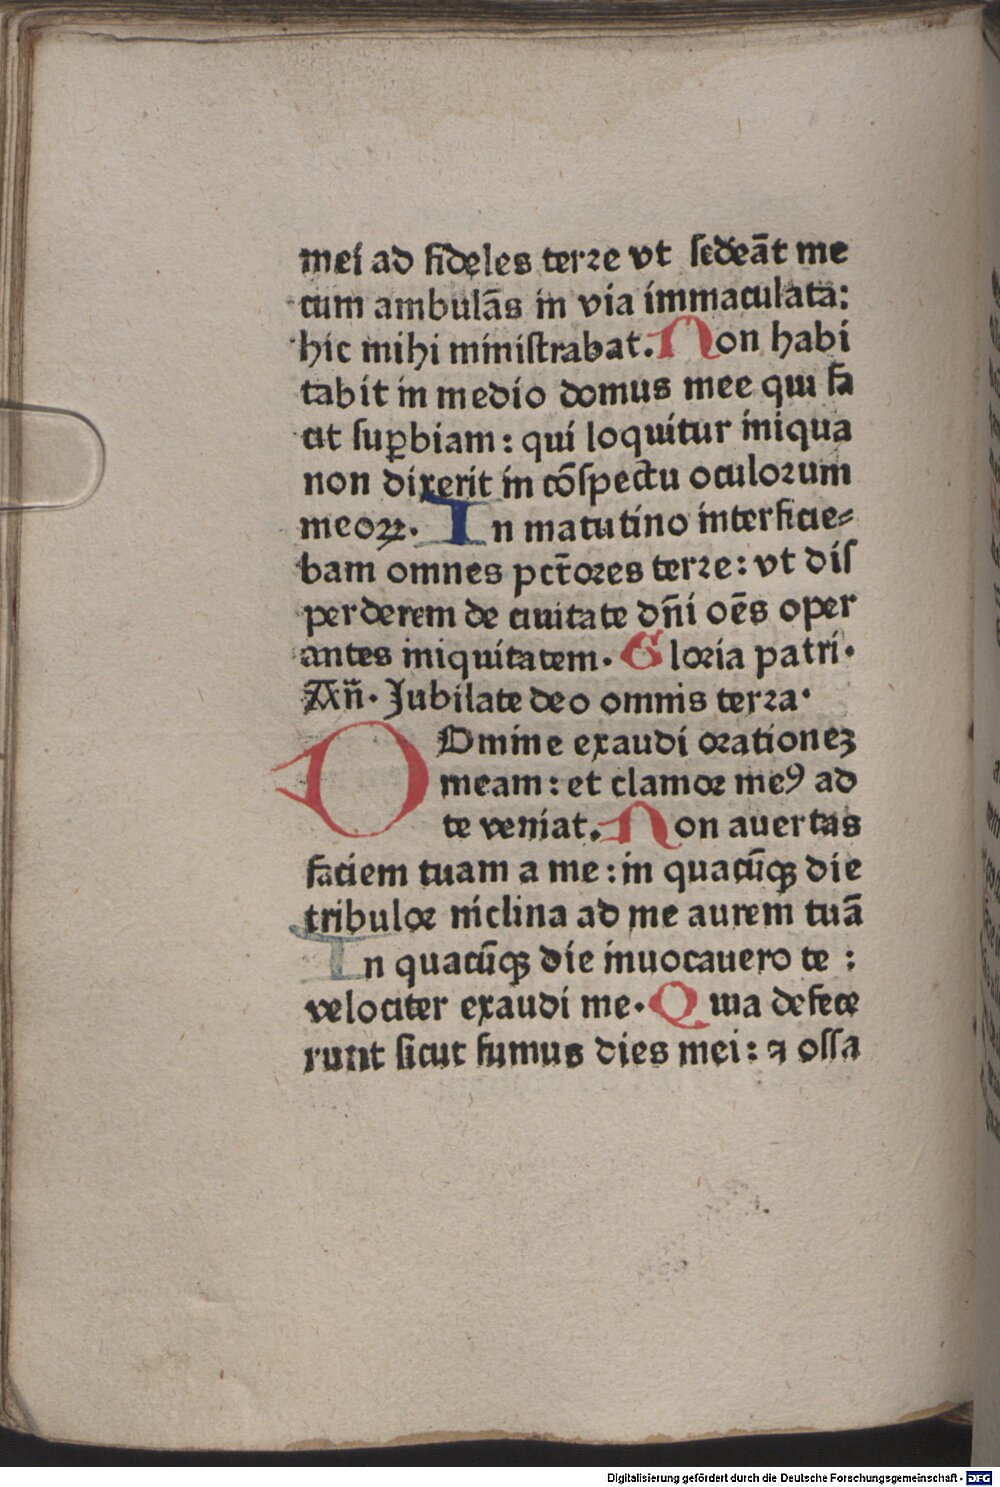 mei ad fideles terre vt sedeāt me
cum ambulās in via immaculata:
hic mihi ministrabat. Non habi
tabit in medio domus mee qui fa
cit suꝑbiam: qui loquitur iniqua
non dixerit in cōspectu oculorum
meoꝝ. In matutino interficie⸗
bam omnes pct̄ores terre: vt dis
perderem de ciuitate dn̄i oēs oper
antes iniquitatem. Gloria patri.
An̄. Jubilate deo omnis terra.
DOmine exaudi orationeꝫ
meam: et clamor meꝰ ad
te veniat. Non auertas
faciem tuam a me: in quacūqꝫ die
tribulor niclina ad me aurem tuā
In quacūqꝫ die inuocauero te :
velociter exaudi me. Quia defece
runt sicut fumus dies mei: ⁊ ossa
Digitalisierung gefördert durch die Deutsche Forschungsgemeinschaft - DFG